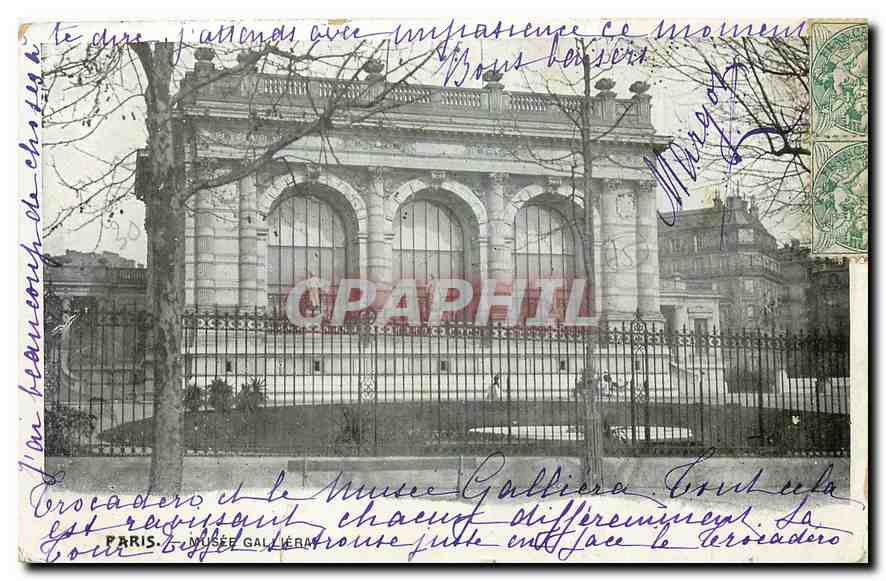 J'ai beaucoup de choses à
te dire j'attends avec impassence ce moment
Bons baisers
Margot
CHAPHIL
Trocadero et le Musée Galliera. Tout cela
est ravissant chacun différemment. La
Tour Eiffel se trouve juste en face le Trocadéro
PARIS. — MUSÉE GALLIÉRA